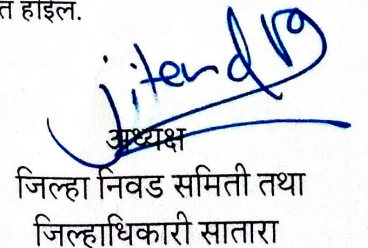 त होईल.
अध्यक्ष
जिल्हा निवड समिती तथा
जिल्हाधिकारी सातारा